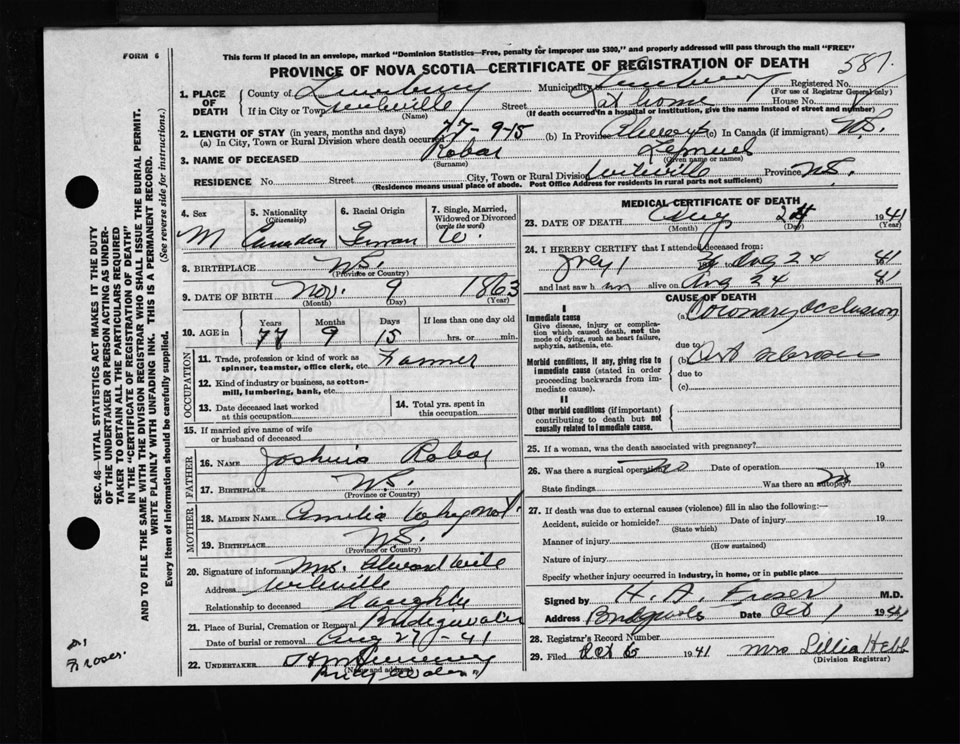 FORM 6
This form if placed in an envelope, marked "Dominion Statistics—Free, penalty for improper use $300," and properly addressed will pass through the mail "FREE"
PROVINCE OF NOVA SCOTIA—CERTIFICATE OF REGISTRATION OF DEATH
587
1. PLACE OF DEATH
County of Lunenburg Municipality of Lunenburg Registered No.
(For use of Registrar General only)
If in City or Town Wileville Street at home House No.
(Name) (If death occurred in a hospital or institution, give the name instead of street and number)
2. LENGTH OF STAY (in years, months and days)
(a) In City, Town or Rural Division where death occurred 77-9-15 (b) In Province (c) In Canada (if immigrant) N.S.
3. NAME OF DECEASED Robar Lemuel
(Surname) (Given name or names)
RESIDENCE No. Street City, Town or Rural Division Wileville Province N.S.
(Residence means usual place of abode. Post Office Address for residents in rural parts not sufficient)
4. Sex M
5. Nationality (Citizenship) Canadian
6. Racial Origin German
7. Single, Married, Widowed or Divorced (write the word) W.
8. BIRTHPLACE N.S.
(Province or Country)
9. DATE OF BIRTH Nov. 9 1863
(Month) (Day) (Year)
10. AGE in Years Months Days If less than one day old
77 9 15 hrs. or min.
OCCUPATION
11. Trade, profession or kind of work as spinner, teamster, office clerk, etc. Farmer
12. Kind of industry or business, as cotton-mill, lumbering, bank, etc.
13. Date deceased last worked at this occupation
14. Total yrs. spent in this occupation
15. If married give name of wife or husband of deceased
FATHER
16. NAME Joshua Robar
17. BIRTHPLACE N.S.
(Province or Country)
MOTHER
18. MAIDEN NAME Amelia Whynot
19. BIRTHPLACE N.S.
(Province or Country)
20. Signature of informant Mrs. Edward Wile
Address Wileville
Relationship to deceased daughter
21. Place of Burial, Cremation or Removal Bridgewater
Date of burial or removal Aug 27-41
22. UNDERTAKER
(Name and address)
MEDICAL CERTIFICATE OF DEATH
23. DATE OF DEATH Aug 24 1941
(Month) (Day) (Year)
24. I HEREBY CERTIFY that I attended deceased from:
Aug 24 41
and last saw h im alive on Aug 24 41
CAUSE OF DEATH
I
Immediate cause
Give disease, injury or complication which caused death, not the mode of dying, such as heart failure, asphyxia, asthenia, etc.
(a) Coronary Occlusion
due to
Morbid conditions, if any, giving rise to immediate cause (stated in order proceeding backwards from immediate cause).
(b)
due to
(c)
II
Other morbid conditions (if important) contributing to death but not causally related to immediate cause.
25. If a woman, was the death associated with pregnancy?
26. Was there a surgical operation no Date of operation 19
State findings Was there an autopsy?
27. If death was due to external causes (violence) fill in also the following:—
Accident, suicide or homicide? Date of injury 19
(State which)
Manner of injury
(How sustained)
Nature of injury
Specify whether injury occurred in industry, in home, or in public place
Signed by H. A. Fraser M.D.
Address Date Oct 1 19
28. Registrar's Record Number
29. Filed Oct 6 1941 Mrs Lillia Hebb
(Division Registrar)
SEC. 46—VITAL STATISTICS ACT MAKES IT THE DUTY
OF THE UNDERTAKER OR PERSON ACTING AS UNDER-
TAKER TO OBTAIN ALL THE PARTICULARS REQUIRED
IN THE "CERTIFICATE OF REGISTRATION OF DEATH"
AND TO FILE THE SAME WITH THE DIVISION REGISTRAR WHO SHALL ISSUE THE BURIAL PERMIT.
WRITE PLAINLY WITH UNFADING INK. THIS IS A PERMANENT RECORD.
Every item of information should be carefully supplied. (See reverse side for instructions.)